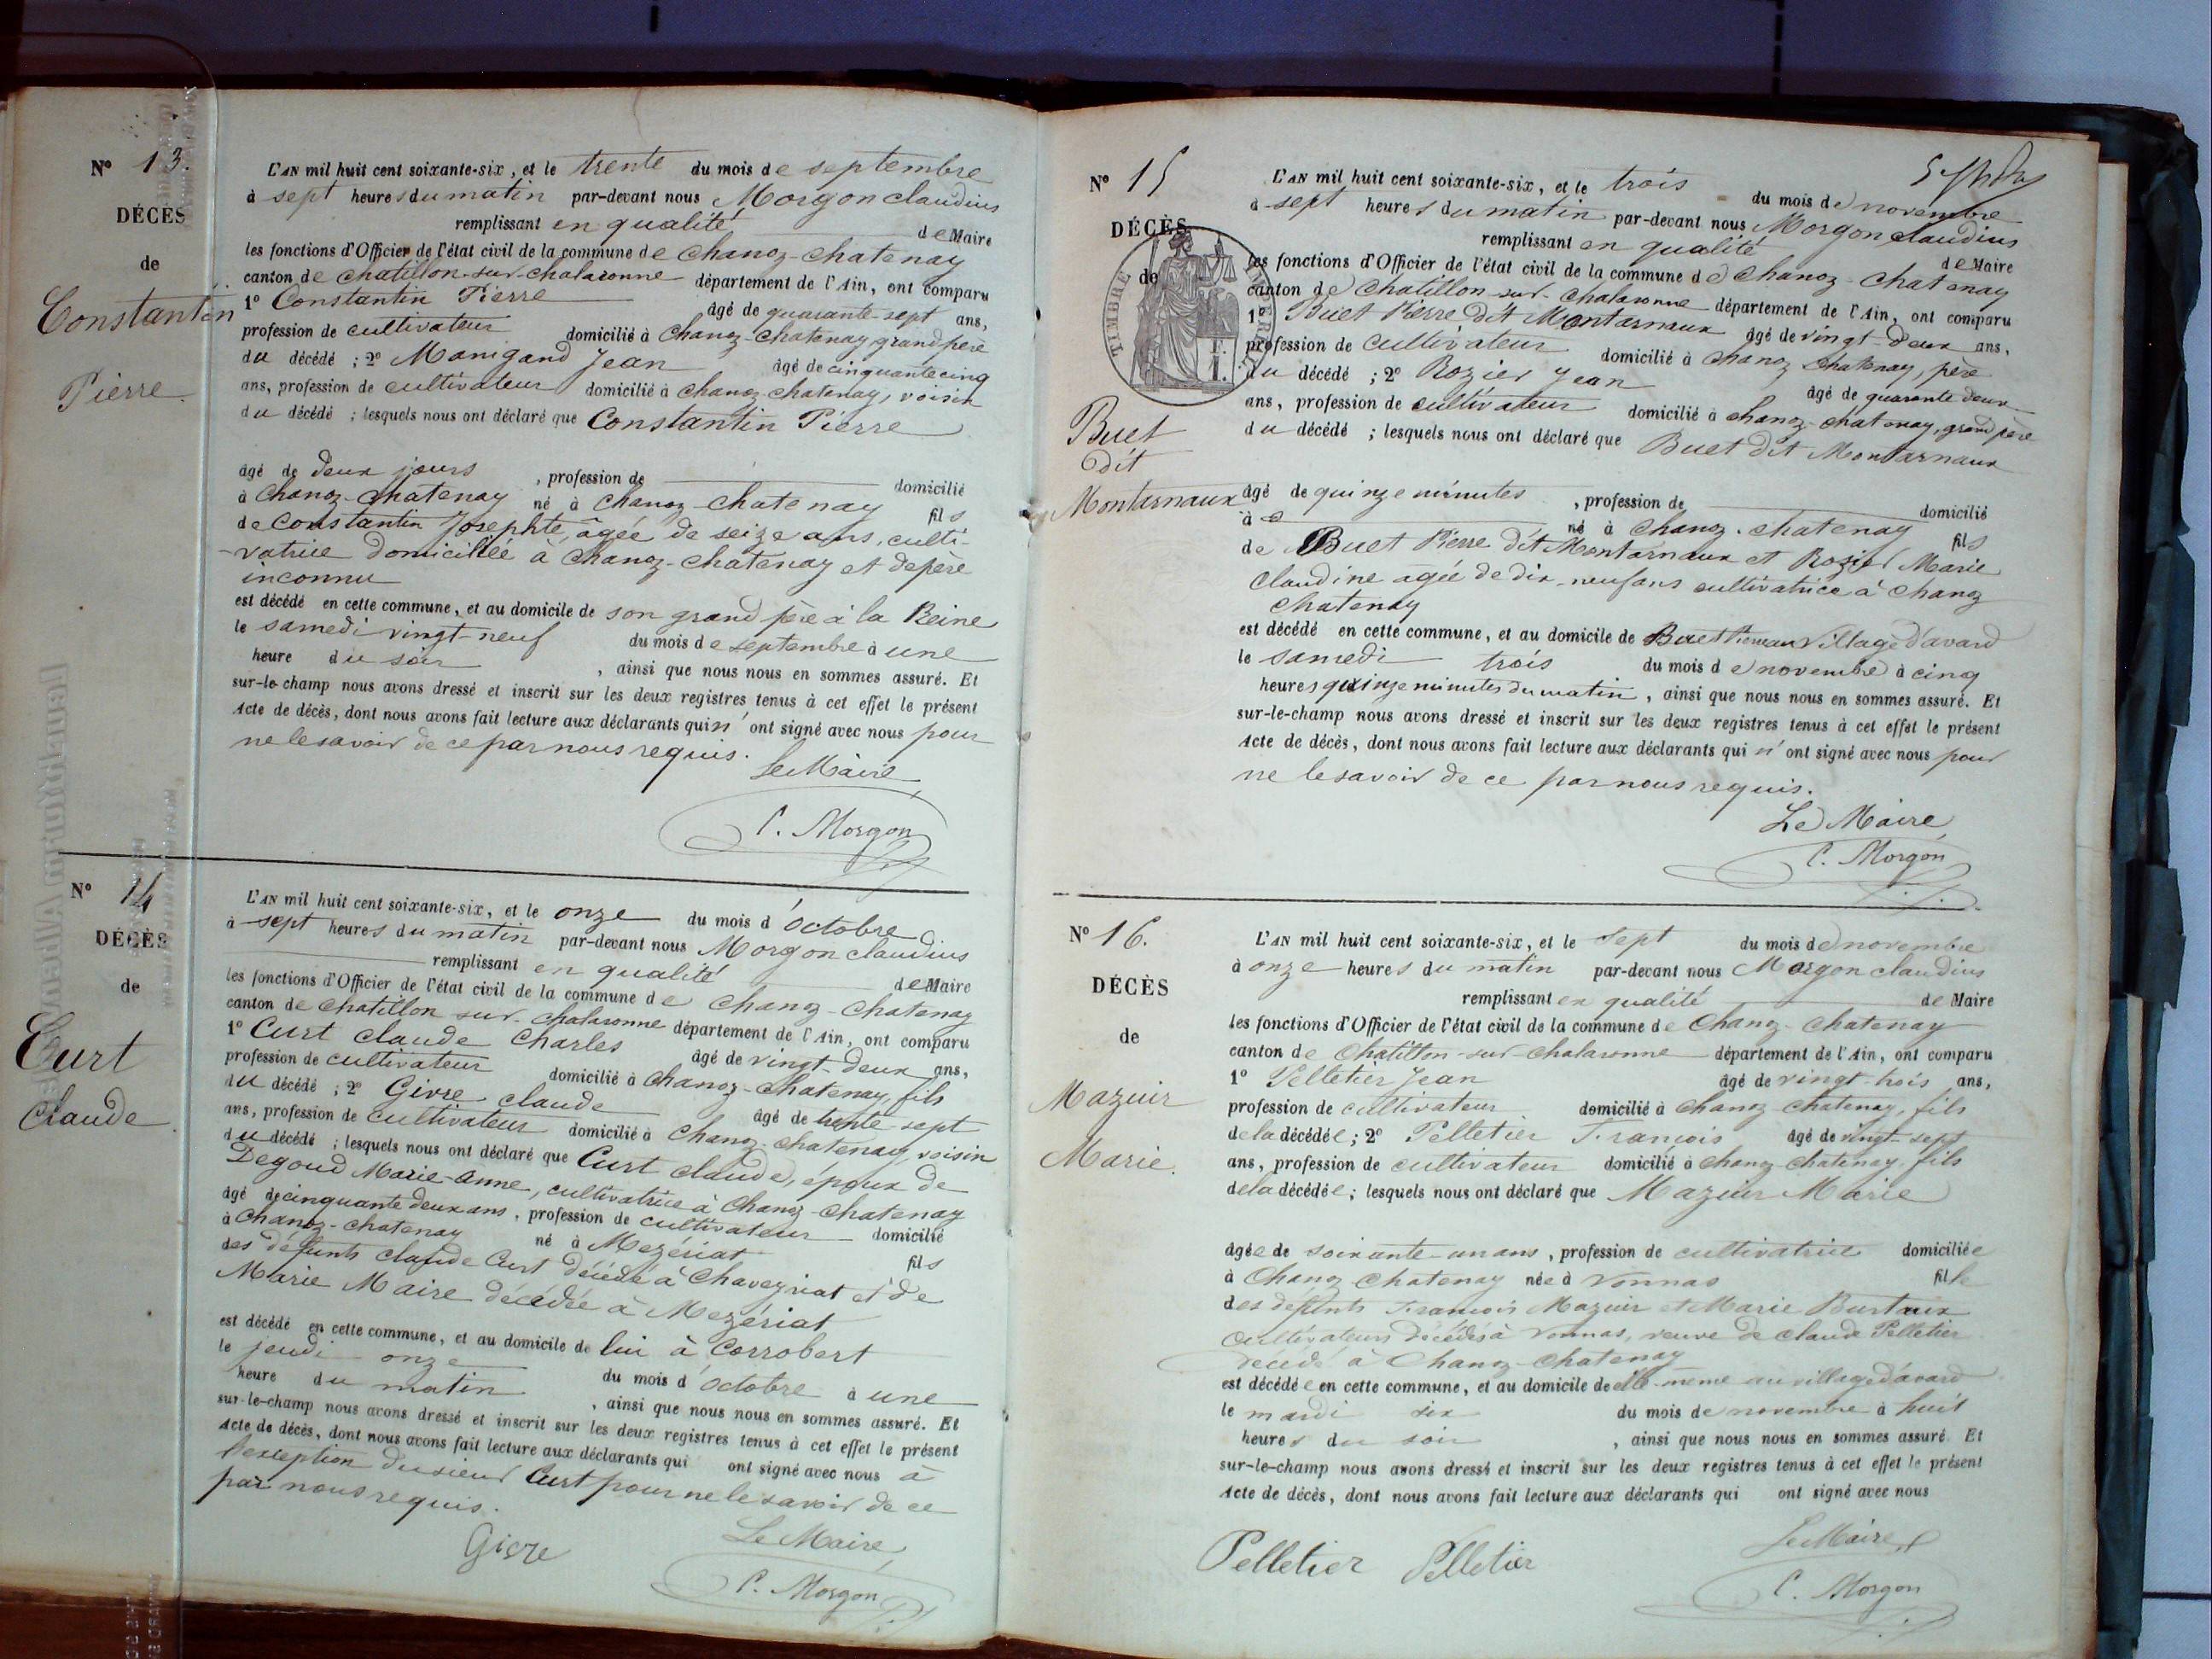 N° 13.
DÉCÈS
de
Constantin
Pierre.
L'AN mil huit cent soixante-six, et le trente du mois de septembre
à sept heures du matin par-devant nous Morgon claudius
remplissant en qualité de Maire
les fonctions d'Officier de l'état civil de la commune de Chanoz-chatenay
canton de chatillon-sur-chalaronne département de l'Ain, ont comparu
1° Constantin Pierre âgé de quarante-sept ans,
profession de cultivateur domicilié à Chanoz-Chatenay grand père
du décédé ; 2° Manigand Jean âgé de cinquante cinq
ans, profession de cultivateur domicilié à chanoz-chatenay, voisin
du décédé ; lesquels nous ont déclaré que Constantin Pierre
âgé de deux jours , profession de domicilié
à Chanoz-chatenay né à Chanoz-chatenay fils
de Constantin Josephte, âgée de seize ans, culti-
-vatrice domiciliée à Chanoz-chatenay et de père
inconnu
est décédé en cette commune, et au domicile de son grand père à la Reine
le samedi vingt-neuf du mois de septembre à une
heure du soir , ainsi que nous nous en sommes assuré. Et
sur-le-champ nous avons dressé et inscrit sur les deux registres tenus à cet effet le présent
Acte de décès, dont nous avons fait lecture aux déclarants qui n'ont signé avec nous pour
ne le savoir de ce par nous requis.
Le Maire
C. Morgon
N° 14
DÉCÈS
de
Curt
Claude.
L'AN mil huit cent soixante-six, et le onze du mois d'Octobre
à sept heures du matin par-devant nous Morgon claudius
remplissant en qualité de Maire
les fonctions d'Officier de l'état civil de la commune de Chanoz-Chatenay
canton de Chatillon sur-chalaronne département de l'Ain, ont comparu
1° Curt claude Charles âgé de vingt-deux ans,
profession de cultivateur domicilié à Chanoz-Chatenay, fils
du décédé ; 2° Givre claude âgé de trente-sept
ans, profession de cultivateur domicilié à Chanoz-chatenay, voisin
du décédé ; lesquels nous ont déclaré que Curt claude, époux de
Degoud Marie-Anne, cultivatrice à Chanoz-Chatenay
âgé de cinquante deux ans, profession de cultivateur domicilié
à Chanoz-chatenay né à Mezériat fils
des défunts claude Curt décédé à Chaveyriat et de
Marie Maire décédée à Mezériat
est décédé en cette commune, et au domicile de lui à Corrobert
le jeudi onze du mois d'Octobre à une
heure du matin , ainsi que nous nous en sommes assuré. Et
sur-le-champ nous avons dressé et inscrit sur les deux registres tenus à cet effet le présent
Acte de décès, dont nous avons fait lecture aux déclarants qui ont signé avec nous à
l'exception du sieur Curt pour ne le savoir de ce
par nous requis.
Givre
Le Maire,
C. Morgon
N° 15
DÉCÈS
de
TIMBRE
Buet
dit
Montarnaux
L'AN mil huit cent soixante-six, et le trois du mois de novembre
à sept heures du matin par-devant nous Morgon claudius
remplissant en qualité de Maire
les fonctions d'Officier de l'état civil de la commune de Chanoz-Chatenay
canton de Chatillon-sur-Chalaronne département de l'Ain, ont comparu
1° Buet Pierre dit Montarnaux âgé de vingt-deux ans,
profession de Cultivateur domicilié à Chanoz Chatenay, père
du décédé ; 2° Rozier Jean âgé de quarante deux
ans, profession de cultivateur domicilié à chanoz-chatenay, grand père
du décédé ; lesquels nous ont déclaré que Buet dit Montarnaux
âgé de quinze minutes , profession de domicilié
à né à Chanoz-chatenay fils
de Buet Pierre dit Montarnaux et Rozier Marie
Claudine agée de dix-neuf ans cultivatrice à Chanoz
Chatenay
est décédé en cette commune, et au domicile de Buet Pierre au village d'avard
le samedi trois du mois de novembre à cinq
heures quinze minutes du matin, ainsi que nous nous en sommes assuré. Et
sur-le-champ nous avons dressé et inscrit sur les deux registres tenus à cet effet le présent
Acte de décès, dont nous avons fait lecture aux déclarants qui n'ont signé avec nous pour
ne le savoir de ce par nous requis.
Le Maire,
C. Morgon
N° 16.
DÉCÈS
de
Mazuir
Marie.
L'AN mil huit cent soixante-six, et le sept du mois de novembre
à onze heures du matin par-devant nous Morgon claudius
remplissant en qualité de Maire
les fonctions d'Officier de l'état civil de la commune de Chanoz-Chatenay
canton de Chatillon-sur-chalaronne département de l'Ain, ont comparu
1° Pelletier Jean âgé de vingt-trois ans,
profession de cultivateur domicilié à Chanoz-Chatenay, fils
de la décédée ; 2° Pelletier François âgé de vingt-sept
ans, profession de cultivateur domicilié à Chanoz-chatenay, fils
de la décédée ; lesquels nous ont déclaré que Mazuir Marie
âgée de soixante-un ans, profession de cultivatrice domiciliée
à Chanoz Chatenay née à Vonnas fille
des défunts François Mazuir et Marie
cultivateurs décédés à Vonnas, veuve de Claude Pelletier
décédé à Chanoz-Chatenay
est décédée en cette commune, et au domicile de elle-même au village d'avard
le mardi six du mois de novembre à huit
heures du soir , ainsi que nous nous en sommes assuré. Et
sur-le-champ nous avons dressé et inscrit sur les deux registres tenus à cet effet le présent
Acte de décès, dont nous avons fait lecture aux déclarants qui ont signé avec nous
Pelletier Pelletier
Le Maire,
C. Morgon